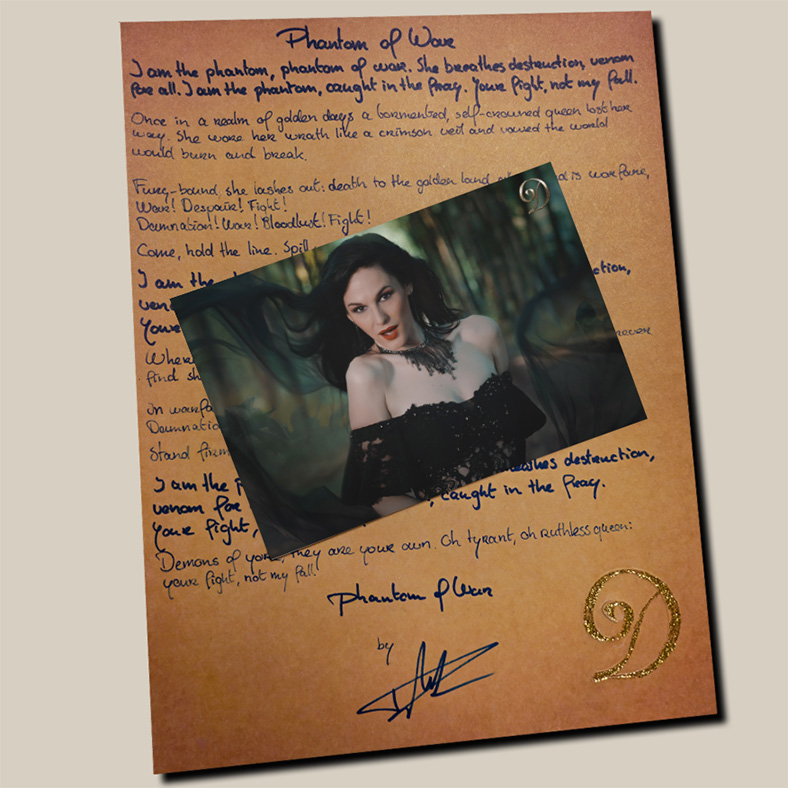 Phantom of War
I am the phantom, phantom of war. She breathes destruction, venom
for all. I am the phantom, caught in the fray. Your fight, not my fall.
Once in a realm of golden days a tormented, self-crowned queen lost her
way. She wore her wrath like a crimson veil and vowed the world
would burn and break.
Fury-bound, she lashes out: death to the golden land is warfare,
War! Despair! Fight!
Damnation! War! Bloodlust! Fight!
Come, hold the line. Spill
D
I am the ction,
ven
Your
Where
find sh
In warfa
Damnatio
Stand firm
I am the p eathes destruction,
venom for , caught in the fray.
Your fight,
Demons of yore, they are your own. Oh tyrant, oh ruthless queen:
your fight, not my fall!
Phantom of War
by
D